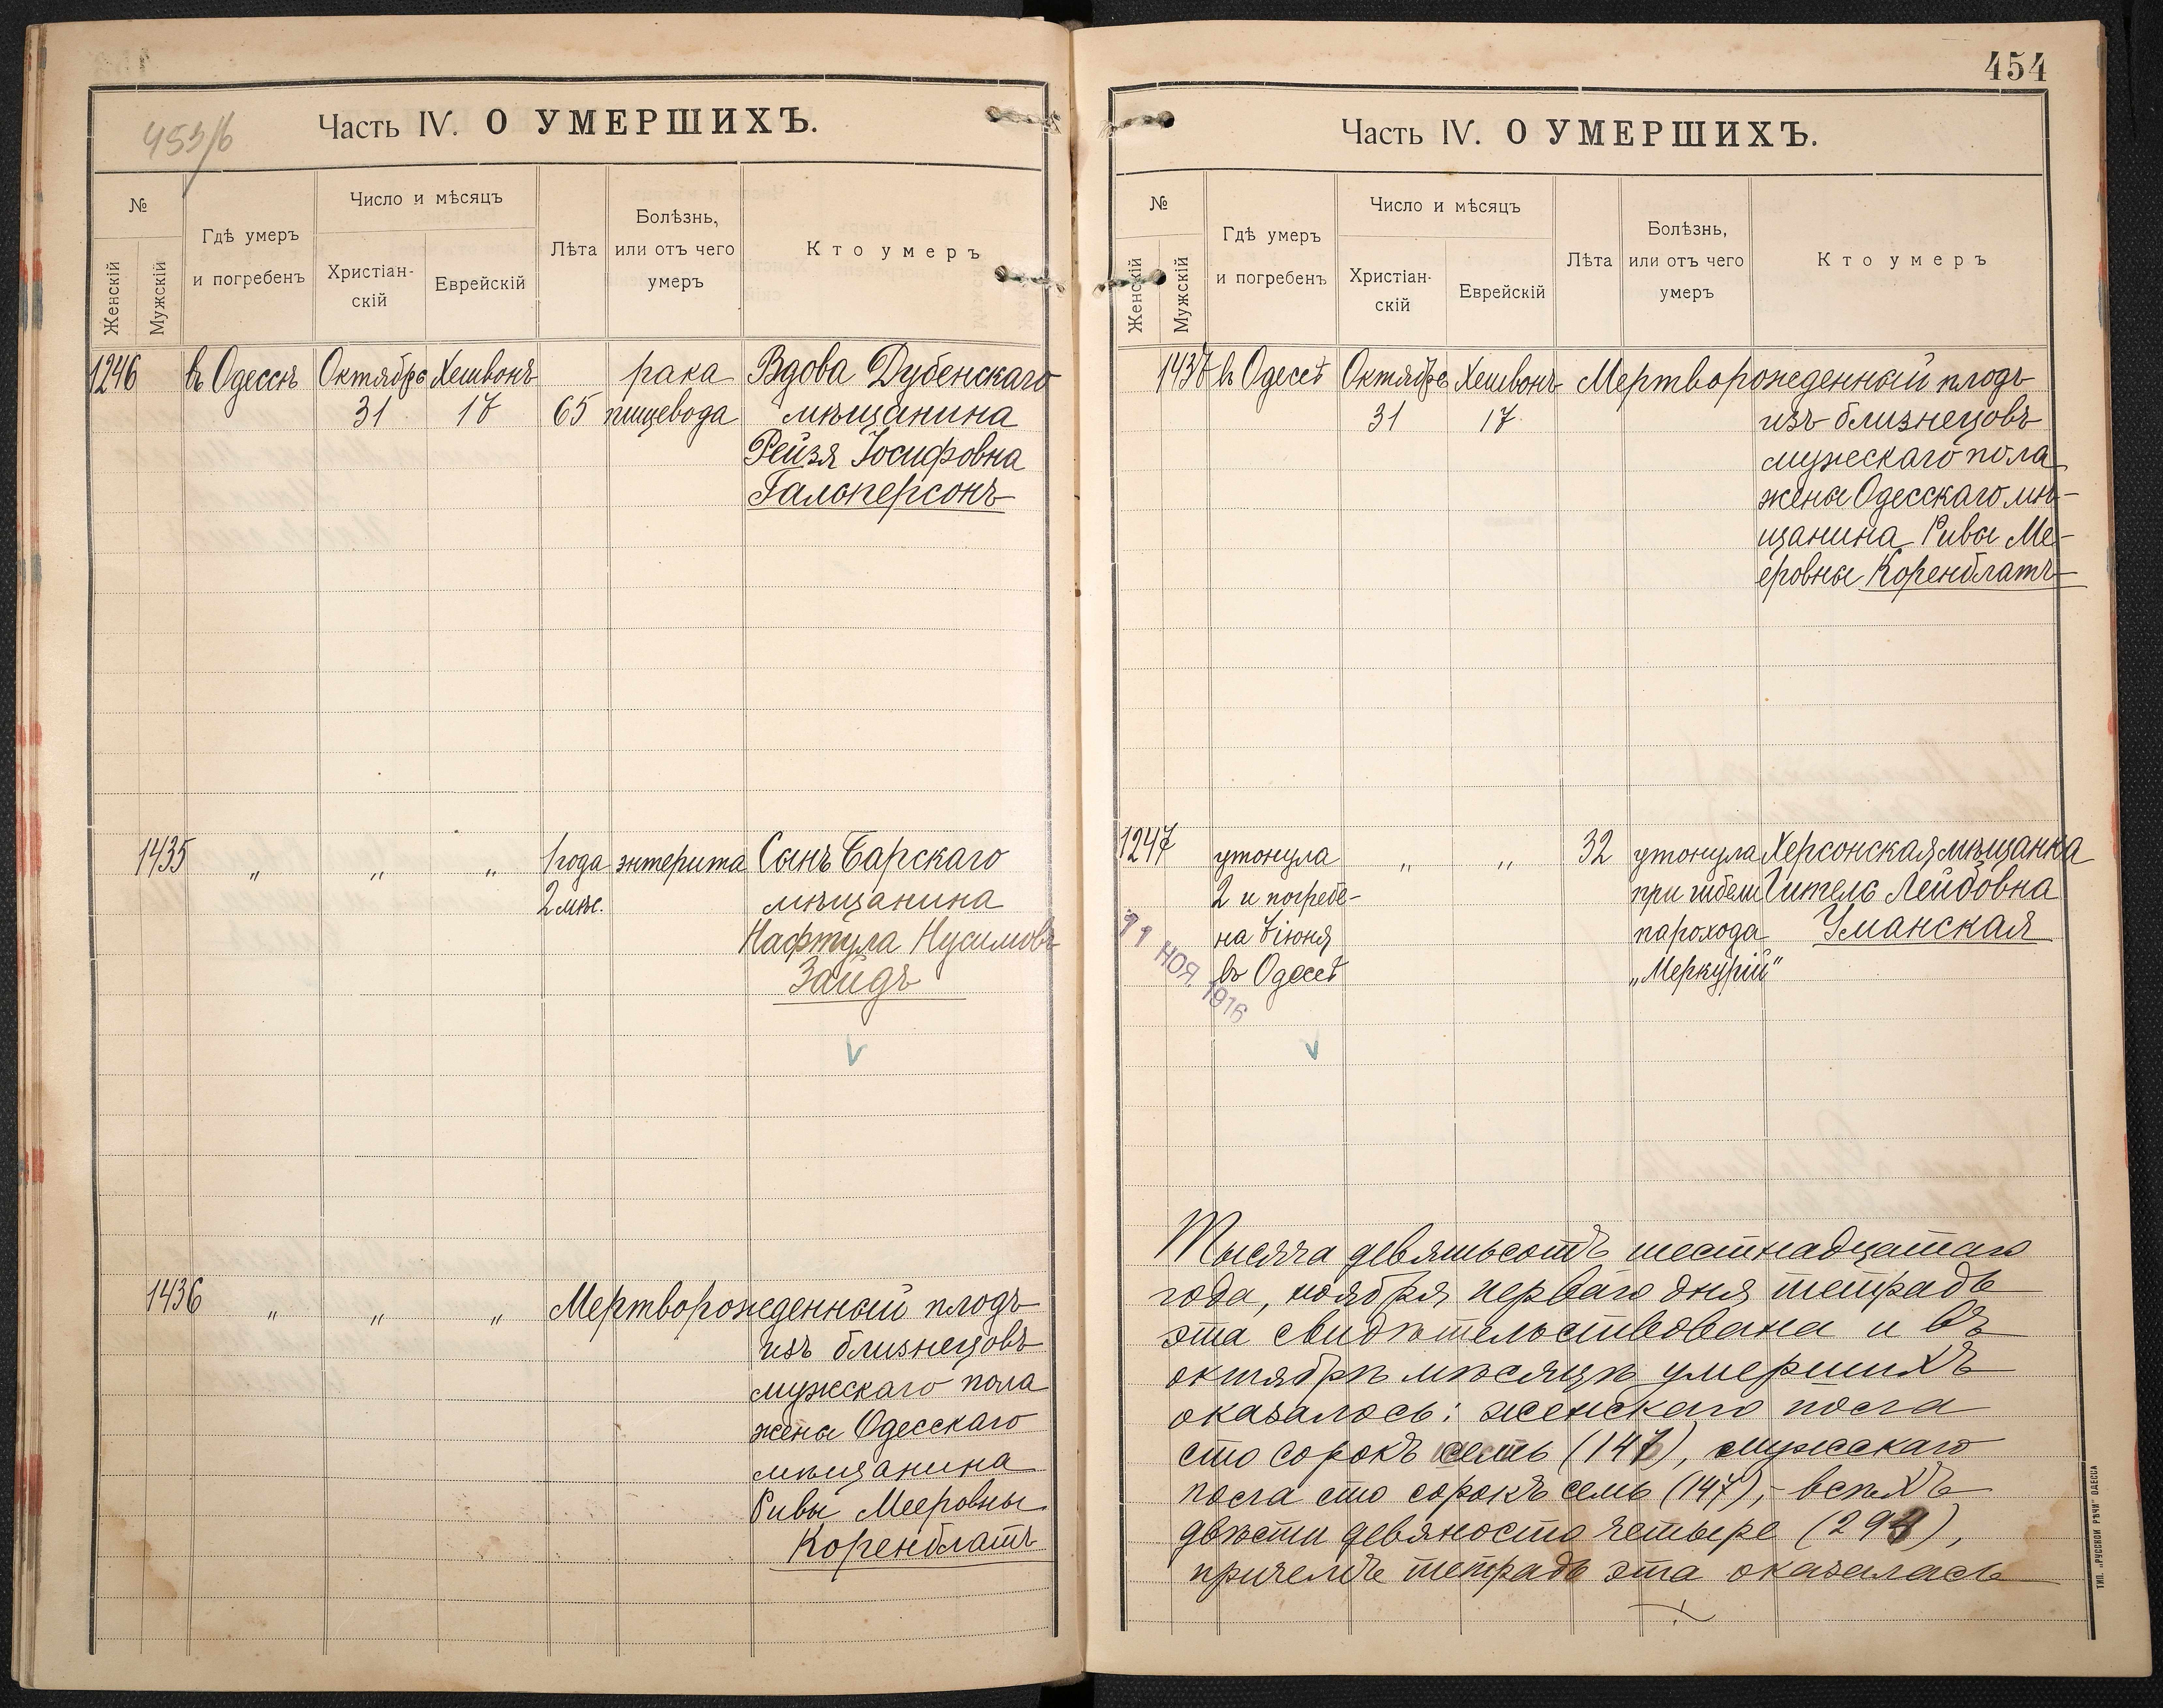 453/б
Часть IV. О УМЕРШИХЪ.
№
Женскій
Мужскій
Гдѣ умеръ
и погребенъ
Число и мѣсяцъ
Христіан-
скій
Еврейскій
Лѣта
Болѣзнь,
или отъ чего
умеръ
Кто умеръ
1246 въ Одессѣ Октябрь Хешвонъ рака Вдова Дубенскаго
31 17 65 пищевода мѣщанина
Рейзя Іосифовна
Гальперсонъ
1435 „ „ „ 1 года энтерита Сынъ Барскаго
2 мѣс. мѣщанина
Нафтула Нусимовъ
Зайдъ
1436 „ „ „ Мертворожденный плодъ
изъ близнецовъ
мужскаго пола
жены Одесскаго
мѣщанина
Ривы Мееровны
Коренблатъ
454
Часть IV. О УМЕРШИХЪ.
№
Женскій
Мужскій
Гдѣ умеръ
и погребенъ
Число и мѣсяцъ
Христіан-
скій
Еврейскій
Лѣта
Болѣзнь,
или отъ чего
умеръ
Кто умеръ
1437 въ Одессѣ Октябрь Хешвонъ Мертворожденный плодъ
31 17 изъ близнецовъ
мужескаго пола
жены Одесскаго мѣ-
щанина Ривы Ме-
еровны Коренблатъ
1247 утонула „ „ 32 утонула Херсонская мѣщанка
2 и погребе- при гибели Гитель Лейбовна
на 7 іюня парохода Уманская
въ Одессѣ „Меркурій“
11 НОЯ. 1916
Тысяча девятьсотъ шестнадцатаго
года, ноября перваго дня тетрадь
эта свидѣтельствована и въ
октябрѣ мѣсяцѣ умершихъ
оказалось: женскаго пола
сто сорокъ семь (147), мужскаго
пола сто сорокъ семь (147), - всѣхъ
двѣсти девяносто четыре (294),
причемъ тетрадь эта оказалась
ТИП. „РУССКОЙ РѢЧИ“ ОДЕССА